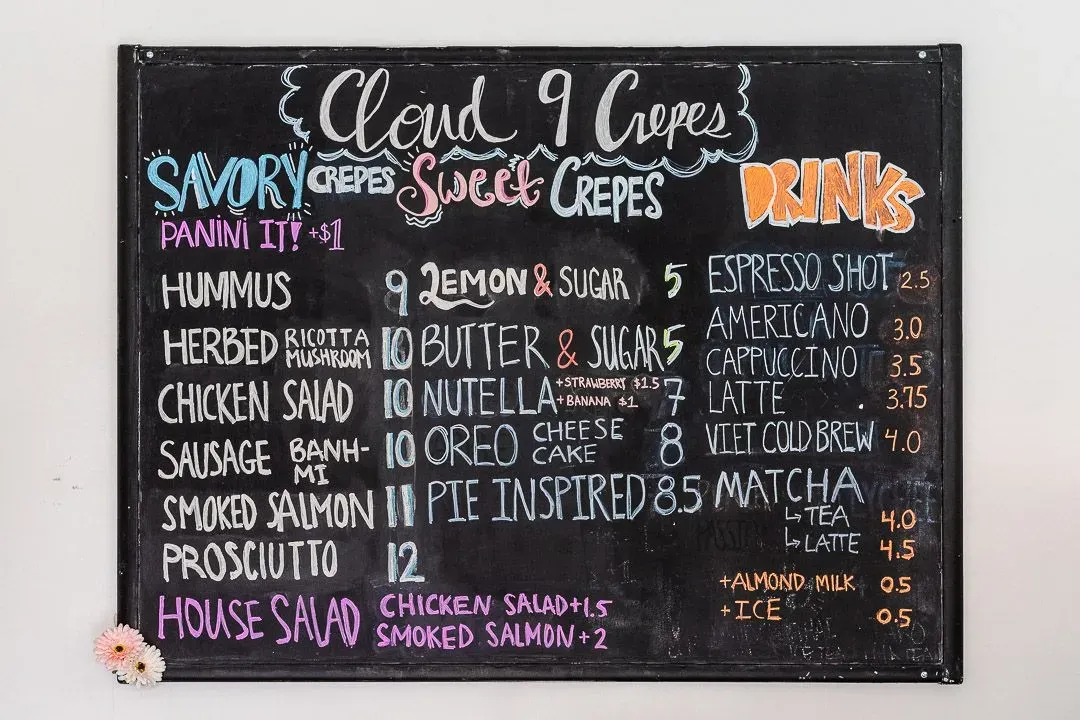 Cloud 9 Crepes
SAVORY CREPES
PANINI IT! +$1
HUMMUS 9
HERBED RICOTTA MUSHROOM 10
CHICKEN SALAD 10
SAUSAGE BANH-MI 10
SMOKED SALMON 11
PROSCIUTTO 12
HOUSE SALAD
CHICKEN SALAD +1.5
SMOKED SALMON +2
Sweet CREPES
LEMON & SUGAR 5
BUTTER & SUGAR 5
NUTELLA 7
+STRAWBERRY $1.5
+BANANA $1
OREO CHEESE CAKE 8
PIE INSPIRED 8.5
DRINKS
ESPRESSO SHOT 2.5
AMERICANO 3.0
CAPPUCCINO 3.5
LATTE 3.75
VIET COLD BREW 4.0
MATCHA
↳ TEA 4.0
↳ LATTE 4.5
+ALMOND MILK 0.5
+ICE 0.5